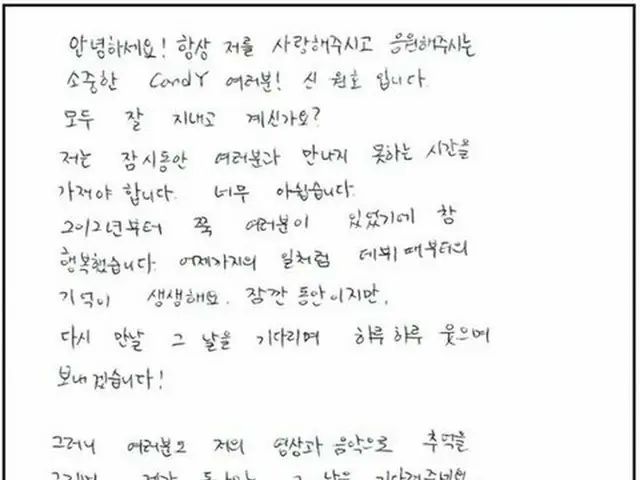 안녕하세요! 항상 저를 사랑해주시고 응원해주시는
소중한 CandY 여러분! 신 원호 입니다.
모두 잘 지내고 계신가요?
저는 잠시동안 여러분과 만나지 못하는 시간을
가져야 합니다. 너무 아쉽습니다.
2012년부터 쭉 여러분이 있었기에 참
행복했습니다. 어제까지의 일처럼 데뷔 때부터의
기억이 생생해요. 잠깐 동안이지만,
다시 만날 그 날을 기다리며 하루 하루 웃으며
보내겠습니다!
그러니 여러분도 저의 영상과 음악으로 추억을